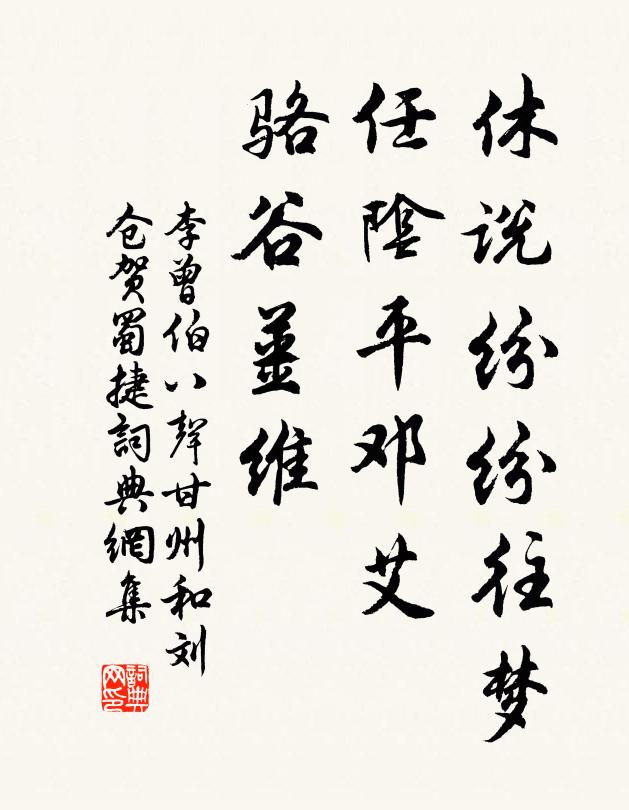 休说纷纷往梦
任陰平邓艾
骆谷薑维
李曾伯八聲甘州和刘
仓贺蜀捷詞典網集
詞典网印